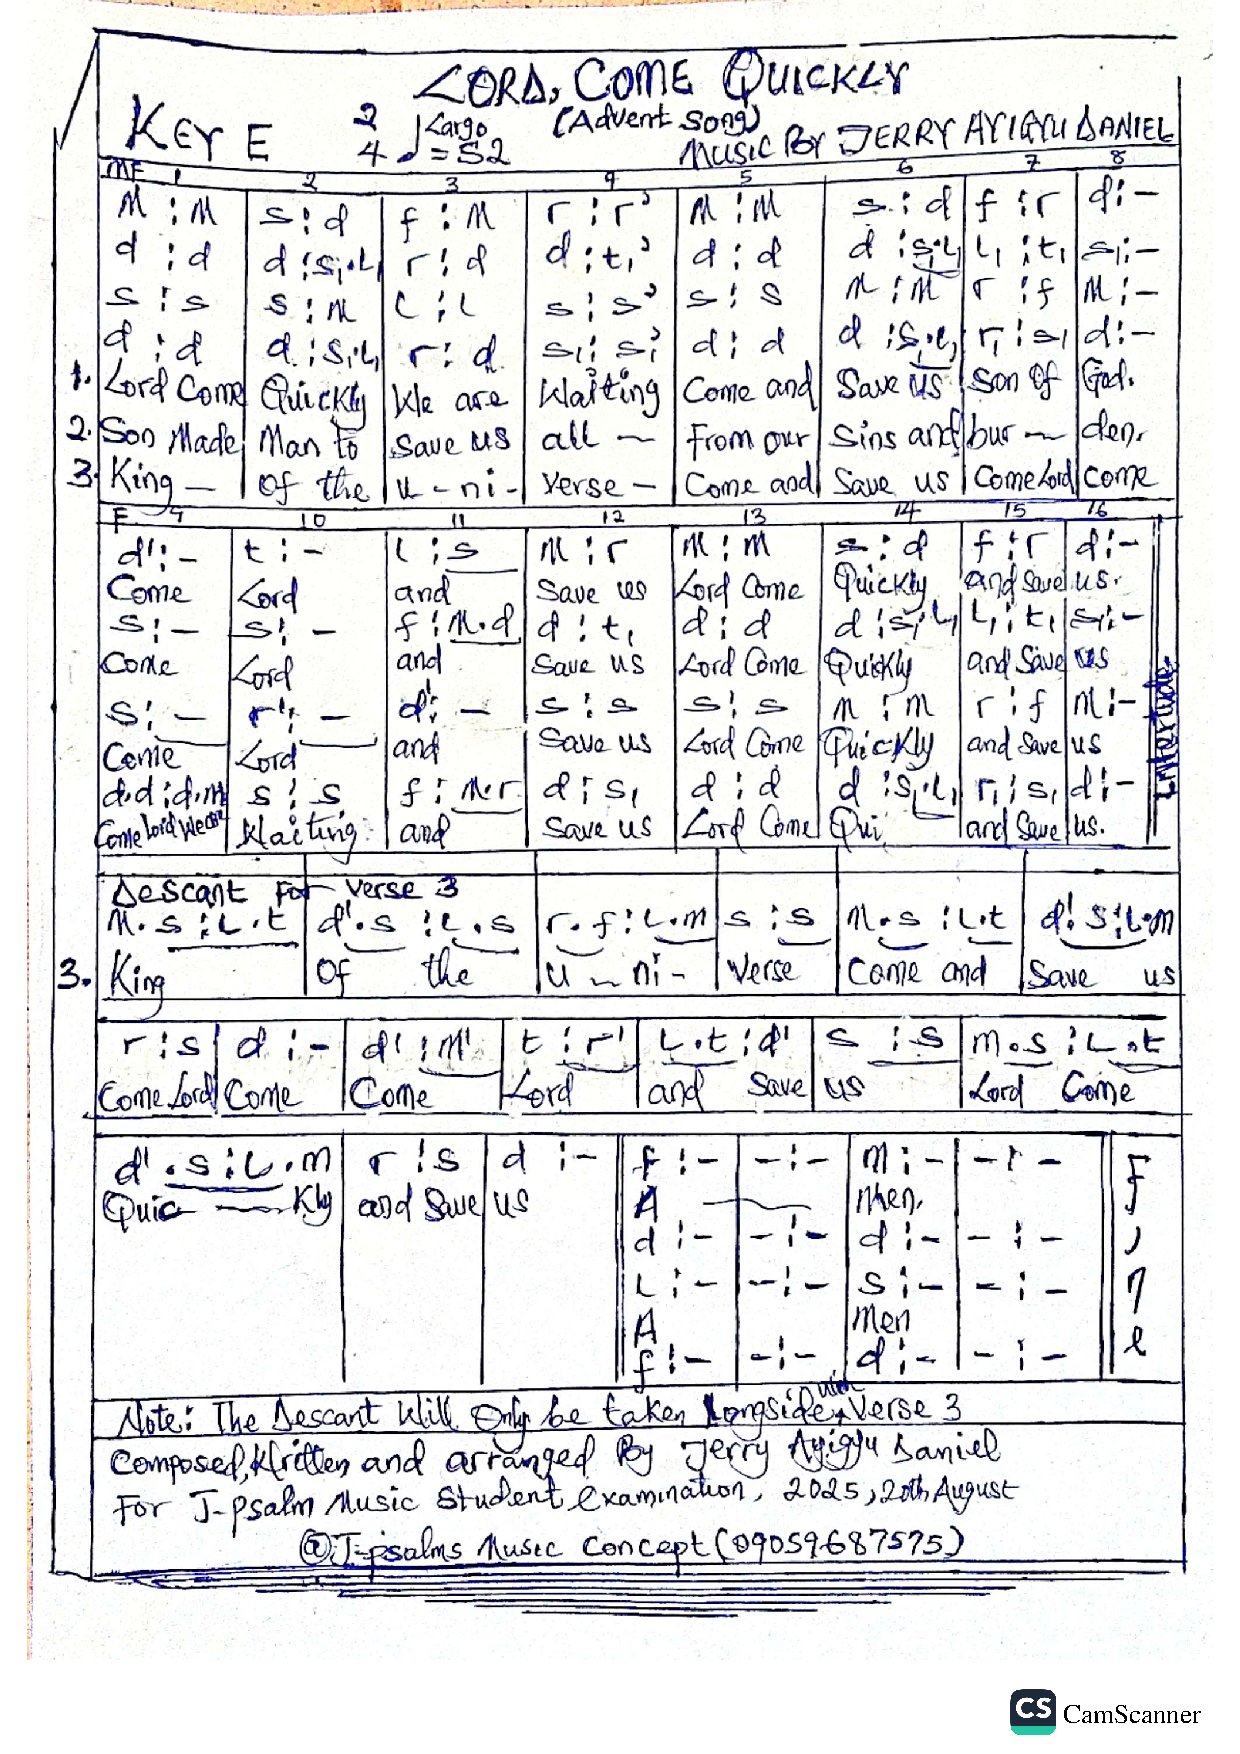 LORD, COME QUICKLY
(Advent song)
KEY E 2/4 ♩ Largo = 52 MUSIC BY JERRY AYIGYU DANIEL
MF 1 2 3 4 5 6 7 8
M : M | s : d | f : M | r : r' | M : M | s : d | f : r | d : -
d : d | d : s₁.L₁ | r : d | d : t₁' | d : d | d : s₁.L₁ | L₁ : t₁ | s₁ : -
s : s | s : M | L : L | s : s' | s : s | M : M | r : f | M : -
d : d | d : s₁.L₁ | r : d | s₁ : s₁' | d : d | d : s₁.L₁ | r₁ : s₁ | d : -
1. Lord Come | Quickly | We are | Waiting | Come and | Save us | Son Of | God.
2. Son Made | Man to | Save us | all - | From our | Sins and | bur - | den.
3. King - | Of the | u - ni - | Verse - | Come and | Save us | Come Lord | come
F 9 10 11 12 13 14 15 16
d' : - | t : - | L : s | M : r | M : M | s : d | f : r | d : -
Come | Lord | and | Save us | Lord Come | Quickly | and save | us.
s : - | s : - | f : M.d | d : t₁ | d : d | d : s₁.L₁ | L₁ : t₁ | s₁ : -
Come | Lord | and | Save us | Lord Come | Quickly | and Save | us
s : - | r' : - | d' : - | s : s | s : s | M : M | r : f | M : -
Come | Lord | and | Save us | Lord Come | Quickly | and save | us
d.d : d.m | s : s | f : M.r | d : s₁ | d : d | d : s₁.L₁ | r₁ : s₁ | d : -
Come Lord We are | Waiting | and | Save us | Lord Come | Qui | and Save | us.
Interlude
Descant For Verse 3
M.s : L.t | d'.s : L.s | r.f : L.m | s : s | M.s : L.t | d'.s : L.m
3. King | Of the | u - ni - | Verse | Come and | Save us
r : s | d : - | d' : M' | t : r' | L.t : d' | s : s | m.s : L.t
Come Lord | Come | Come | Lord | and Save | us | Lord Come
d'.s : L.m | r : s | d : - | f : - | - : - | M : - | - : -
Quic - Kly | and Save | us | A - | Men.
d : - | - : - | d : - | - : -
L : - | - : - | s : - | - : -
A Men
f : - | - : - | d : - | - : -
Fine
Note: The Descant Will Only be taken Longside with Verse 3
Composed, Written and arranged By Jerry Ayigyu Daniel
For J-psalm Music Student examination, 2025, 20th August
@J-psalms Music Concept (09059687575)
CS CamScanner